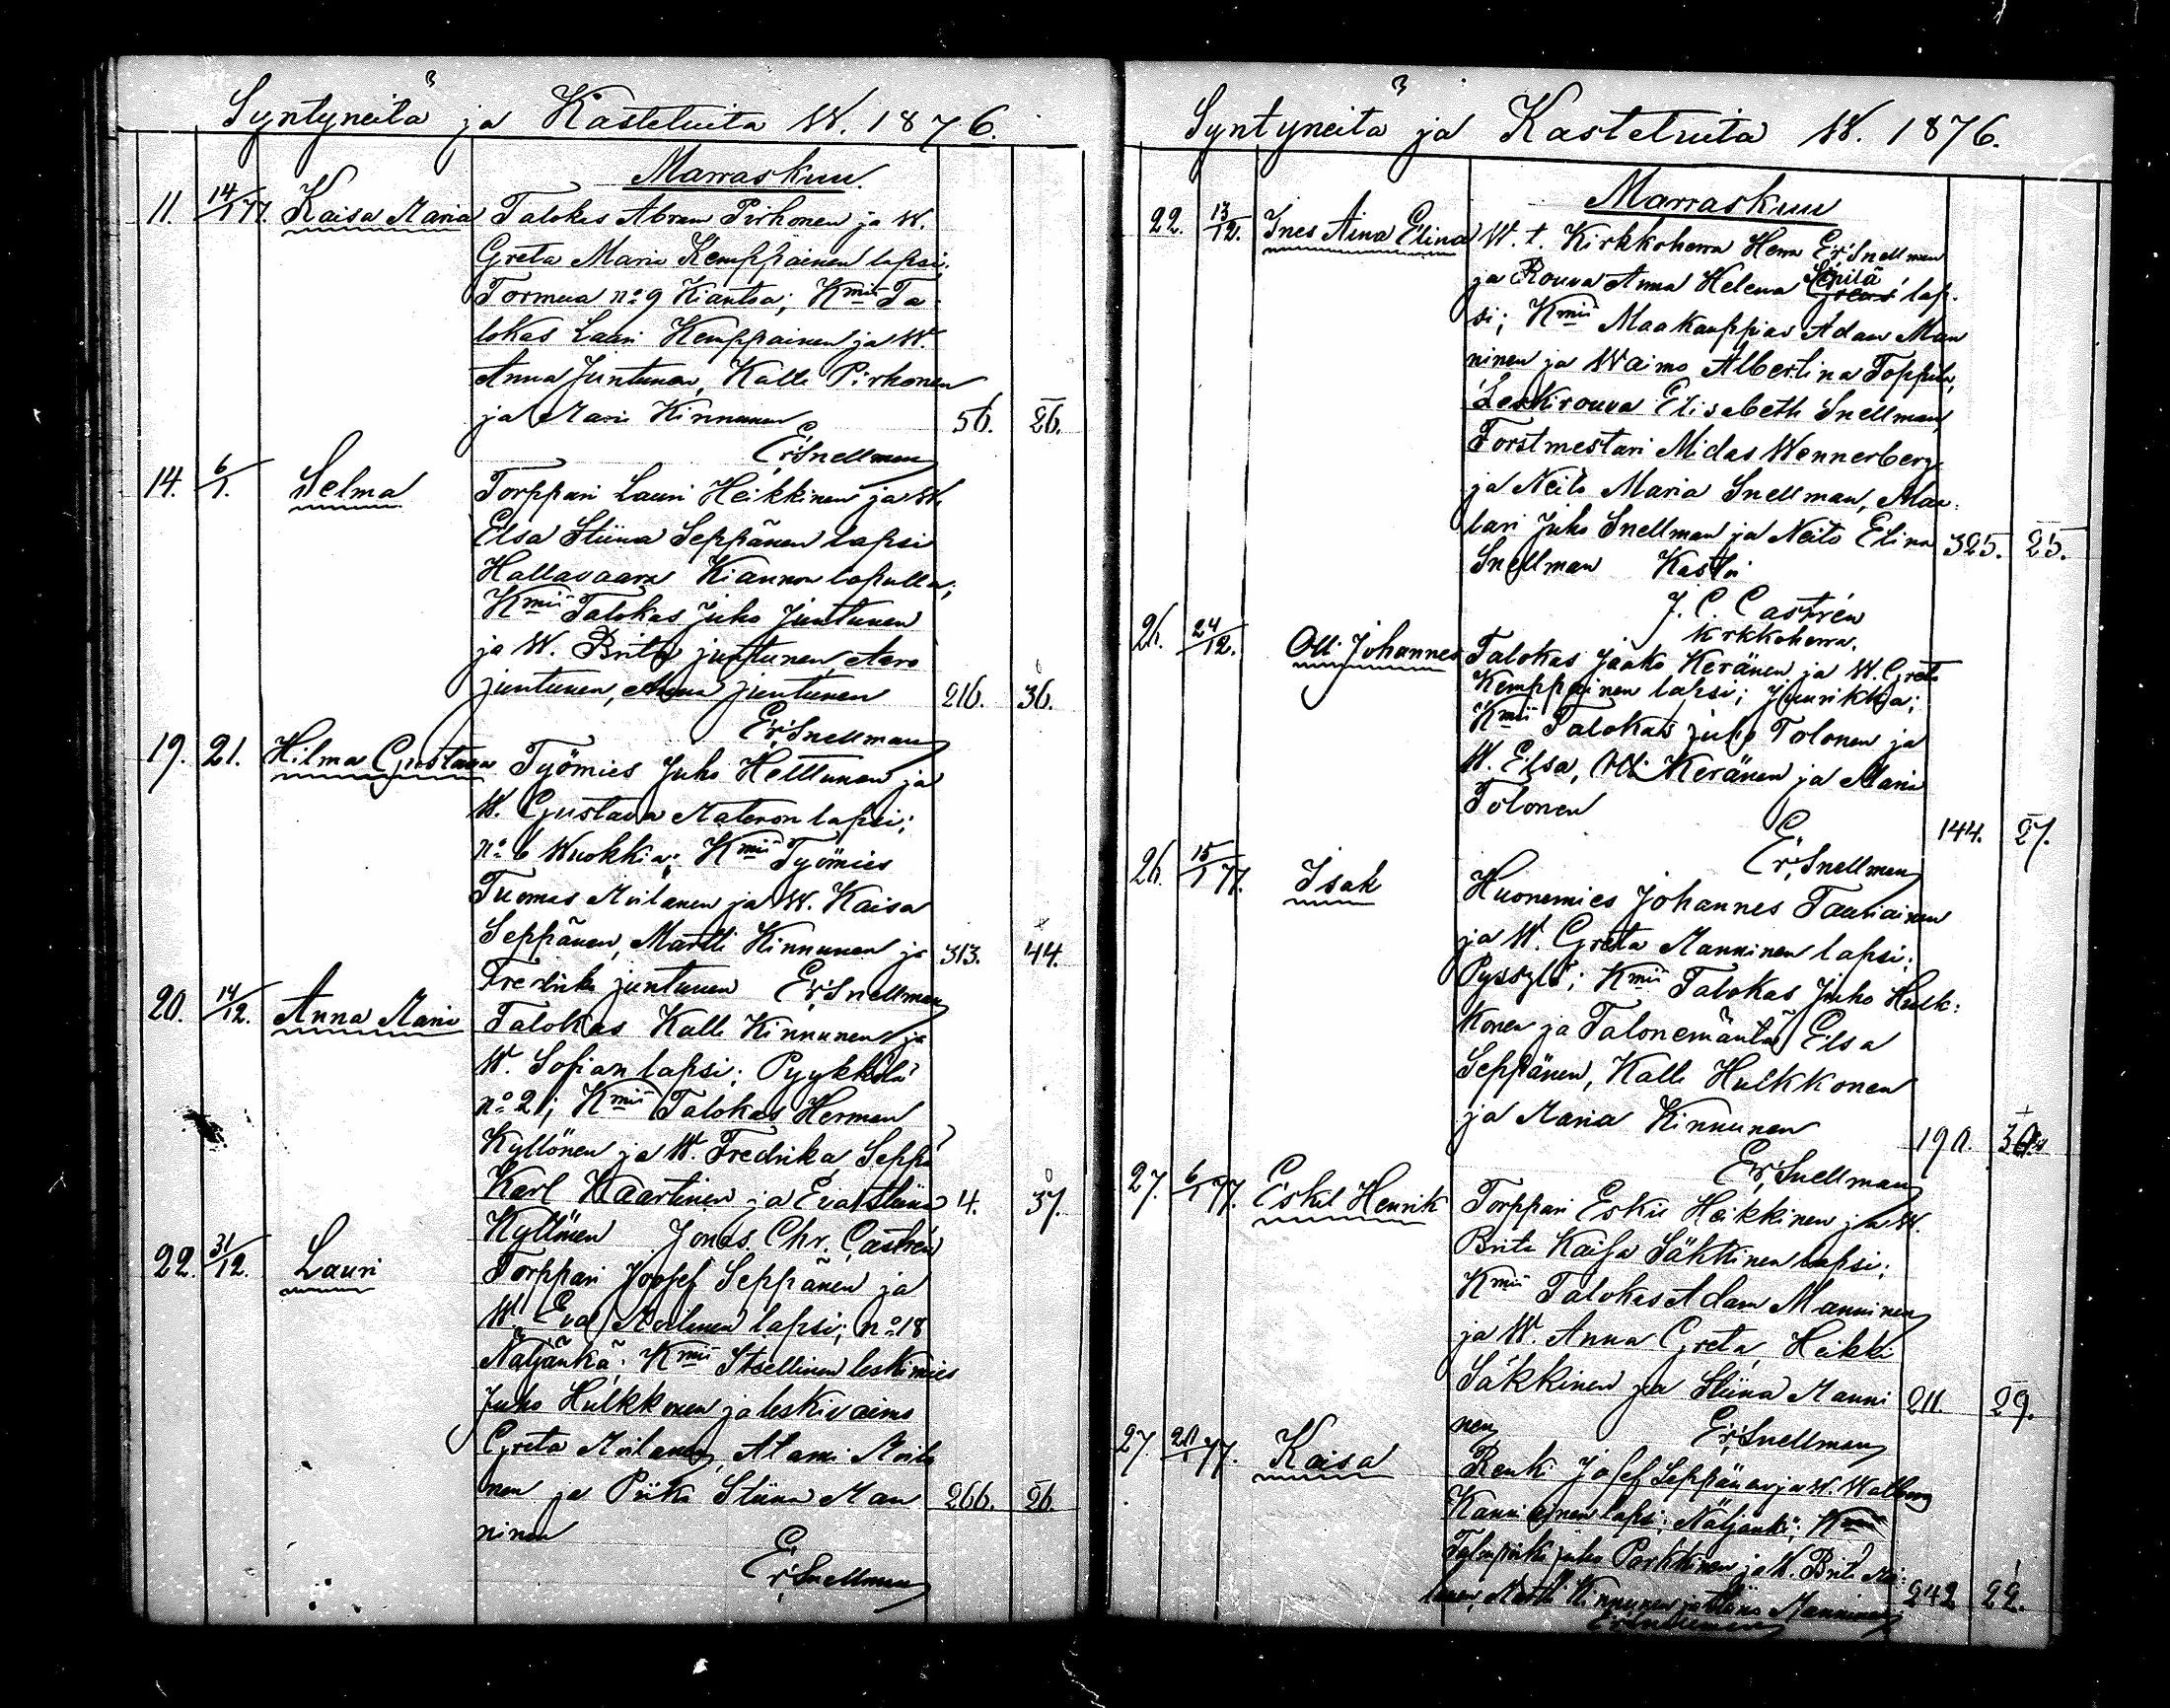 Syntyneitä ja Kastetuita W. 1876.
Marraskuu.
11. 14/1 77. Kaisa Maria Talokas Abram Pirhonen ja W.
Greta Maria Kemppainen lapsi;
Tormua no 9 Kianta; Kmit Ta-
lokas Lauri Kemppainen ja W.
Anna Juntunen, Kalle Pirhonen
ja Maria Kinnunen 56. 26.
Er. Snellman
14. 6/1. Selma Torppari Lauri Heikkinen ja W.
Elsa Stiina Seppänen lapsi
Hallavaara Kiannon lapulla;
Kmit Talokas Juho Juntunen
ja W. Brita Juntunen, Aaro
Juntunen, Anna Juntunen 216. 36.
Er. Snellman
19. 21. Hilma Gustava Työmies Juho Helttunen ja
W. Gustava Materon lapsi;
no 6 Wuokki; Kmit Työmies
Tuomas Moilanen ja W. Kaisa
Seppänen, Martti Kinnunen ja 313. 44.
Fredrika Juntunen Er. Snellman
20. 14/12. Anna Maria Talokas Kalle Kinnunen ja
W. Sofian lapsi; Pyykkölä
no 21; Kmit Talokas Herman
Kyllönen ja W. Fredrika Seppä
Karl Kaartinen ja Eva Stiina 4. 37.
Kyllönen Jonas Chr. Castrén
22. 31/12. Lauri Torppari Joosef Seppänen ja
W. Eva Moilanen lapsi; no 18
Näljänkä; Kmit Itsellinen leskimies
Juho Hulkkonen ja leskivaimo
Greta Moilanen, Atami Moila
nen ja Piika Stiina Man 266. 26
ninen
Er. Snellman
Syntyneitä ja Kastetuita W. 1876.
Marraskuu
22. 13/12. Ines Aina Elina W. t. Kirkkoherra Herra Er. Snellman
ja Rouva Anna Helena Sipilä lap-
si; Kmit Maakauppias Adam Man
ninen ja Waimo Albertina Toppila,
Leskirouva Elisabeth Snellman,
Forstmestari Midas Wennerberg
ja Neito Maria Snellman, Maa-
lari Juho Snellman ja Neito Elina 325. 25.
Snellman Kastoi
J. C. Castrén
kirkkoherra.
26. 24/12. Olli Johannes Talokas Jaako Keränen ja W. Greta
Kemppainen lapsi; Juurikka;
Kmit Talokas Juho Tolonen ja
W. Elsa, Olli Keränen ja Maria
Tolonen 144. 27.
Er. Snellman
26. 15/1 77. Isak Huonemies Johannes Tauriainen
ja W. Greta Manninen lapsi;
Pyssylä; Kmit Talokas Juho Hulk-
konen ja Talonemäntä Elsa
Seppänen, Kalle Hulkkonen
ja Maria Kinnunen 190.
Er. Snellman
27. 6/1 77. Eskil Henrik Torppari Eskil Heikkinen ja W.
Brita Kaisa Säkkinen lapsi;
Kmit Talokas Adam Manninen
ja W. Anna Greta, Heikki
Säkkinen ja Stiina Manni 211. 29.
nen Er. Snellman
27. 20/1 77. Kaisa Renki Josef Seppänen ja W. Walborg
Kanniainen lapsi; Näljänkä; Kmit
Juho Parkkinen ja W. Brita Moi-
lanen, Martti Kinnunen ja Stiina Manninen 242 22.
Er. Snellman